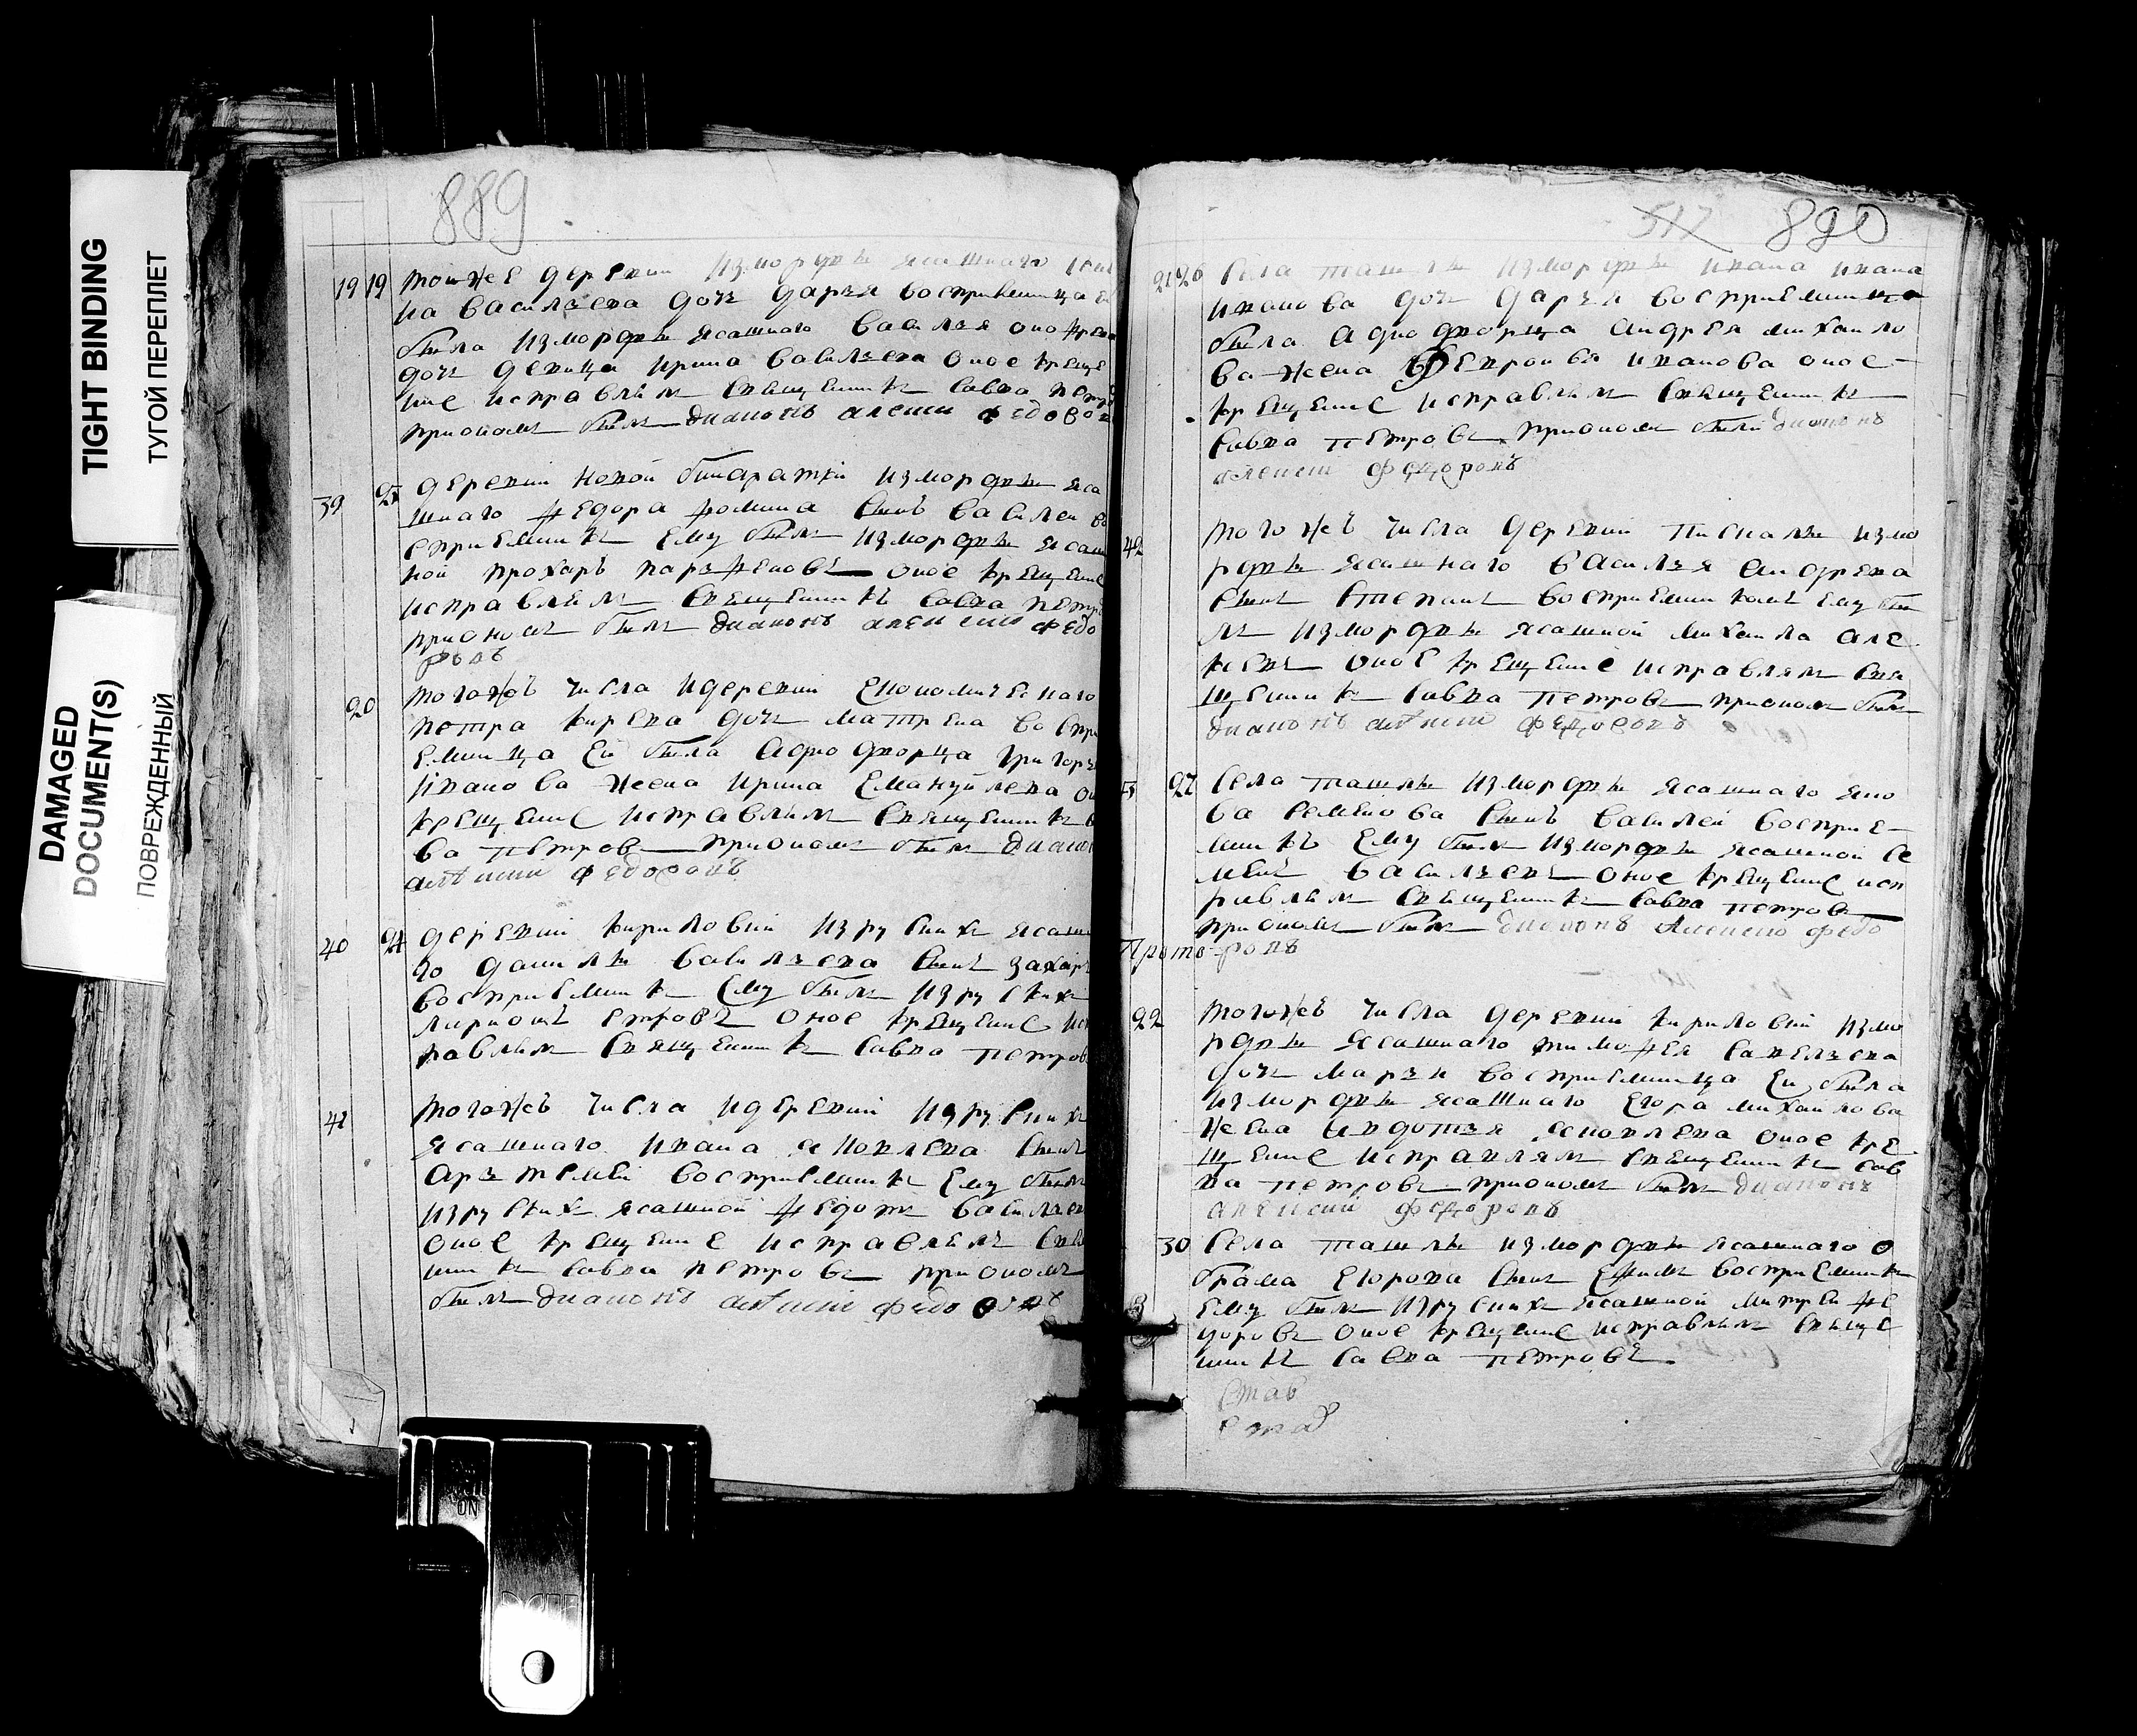 TIGHT BINDING
ТУГОЙ ПЕРЕПЛЕТ
DAMAGED
DOCUMENT(S)
ПОВРЕЖДЕННЫЙ
889
19 19 тоиже деревни измордвы ясашнаго
на василъева дочь даръя восприемница
была измордвы ясашного василъя
дочь девица ирина василъева оное креще
ние исправлял священникъ савва петро
приономъ былъ диаконъ алеѯий федоро
39 деревни новой бинаратки измордвы яса
шнаго федора фомина сынъ василеи во
сприемникъ ему былъ измордвы ясаш
ной прохоръ парфеновъ оное крещение
исправлялъ священникъ савва петро
приономъ былъ диаконъ алеѯий федо
ровъ
20 тогожъ числа идеревни економическаго
петра кирева дочь матрена воспри
емница еи была аднодворца григоръ
иванова жена ирина емануйлева
крещение исправлялъ священникъ
ва петровъ приономъ былъ диакон
алеѯий федоровъ
40 24 деревни кириловки изрускихъ ясаш
го данилы василъева сынъ захаръ
восприемникъ ему былъ изрускихъ
ларионъ петровъ оное крещение ис
правлялъ священникъ савва петров
41 тогожъ числа идеревни изрускихъ
ясашнаго ивана яковлева сынъ
аръземей восприемникъ ему былъ
изрускихъ ясашной федотъ василъев
оное крещение исправлялъ свя
никъ савва петровъ приономъ
былъ диаконъ алеѯий федоровъ
517 890
26 села ташлы измордвы ивана ивана
иванова дочь даръя восприемница
была аднодворца андрея михаило
ва жена февронъя иванова оное
крещение исправлялъ священникъ
савва петровъ приономъ были диаконъ
алеѯий федоровъ
42 тогожъ числа деревни пискалы измо
рдвы ясашнаго василъя андрева
сынъ степанъ восприемникомъ ему бы
лъ измордвы ясашной михаила але
ѯевъ оное крещение исправлялъ свя
щенникъ савва петровъ приономъ былъ
диаконъ алеѯий федоровъ
27 села ташлы измордвы ясашнаго яко
ва семенова сынъ василей восприе
мникъ ему былъ измордвы ясашной се
менъ василъевъ оное крещение исп
равлялъ священникъ савва петровъ
приономъ былъ диаконъ алеѯий федо
Прото ровъ
22 тогожъ числа деревни кириловки измо
рдвы ясашнаго тимофея савелъева
дочь маръя восприемница еи была
измордвы ясашнаго егора михаилова
жена авдотъя яковлева оное кре
щение исправлялъ священникъ сав
ва петровъ приономъ былъ диаконъ
алеѯий федоровъ
30 села ташлы измордвы ясашнаго о
брама егорова сынъ ефимъ восприемникъ
ему былъ изрускихъ ясашной митреи фе
доровъ оное крещение исправлялъ свяще
нникъ савва петровъ
Став
Став